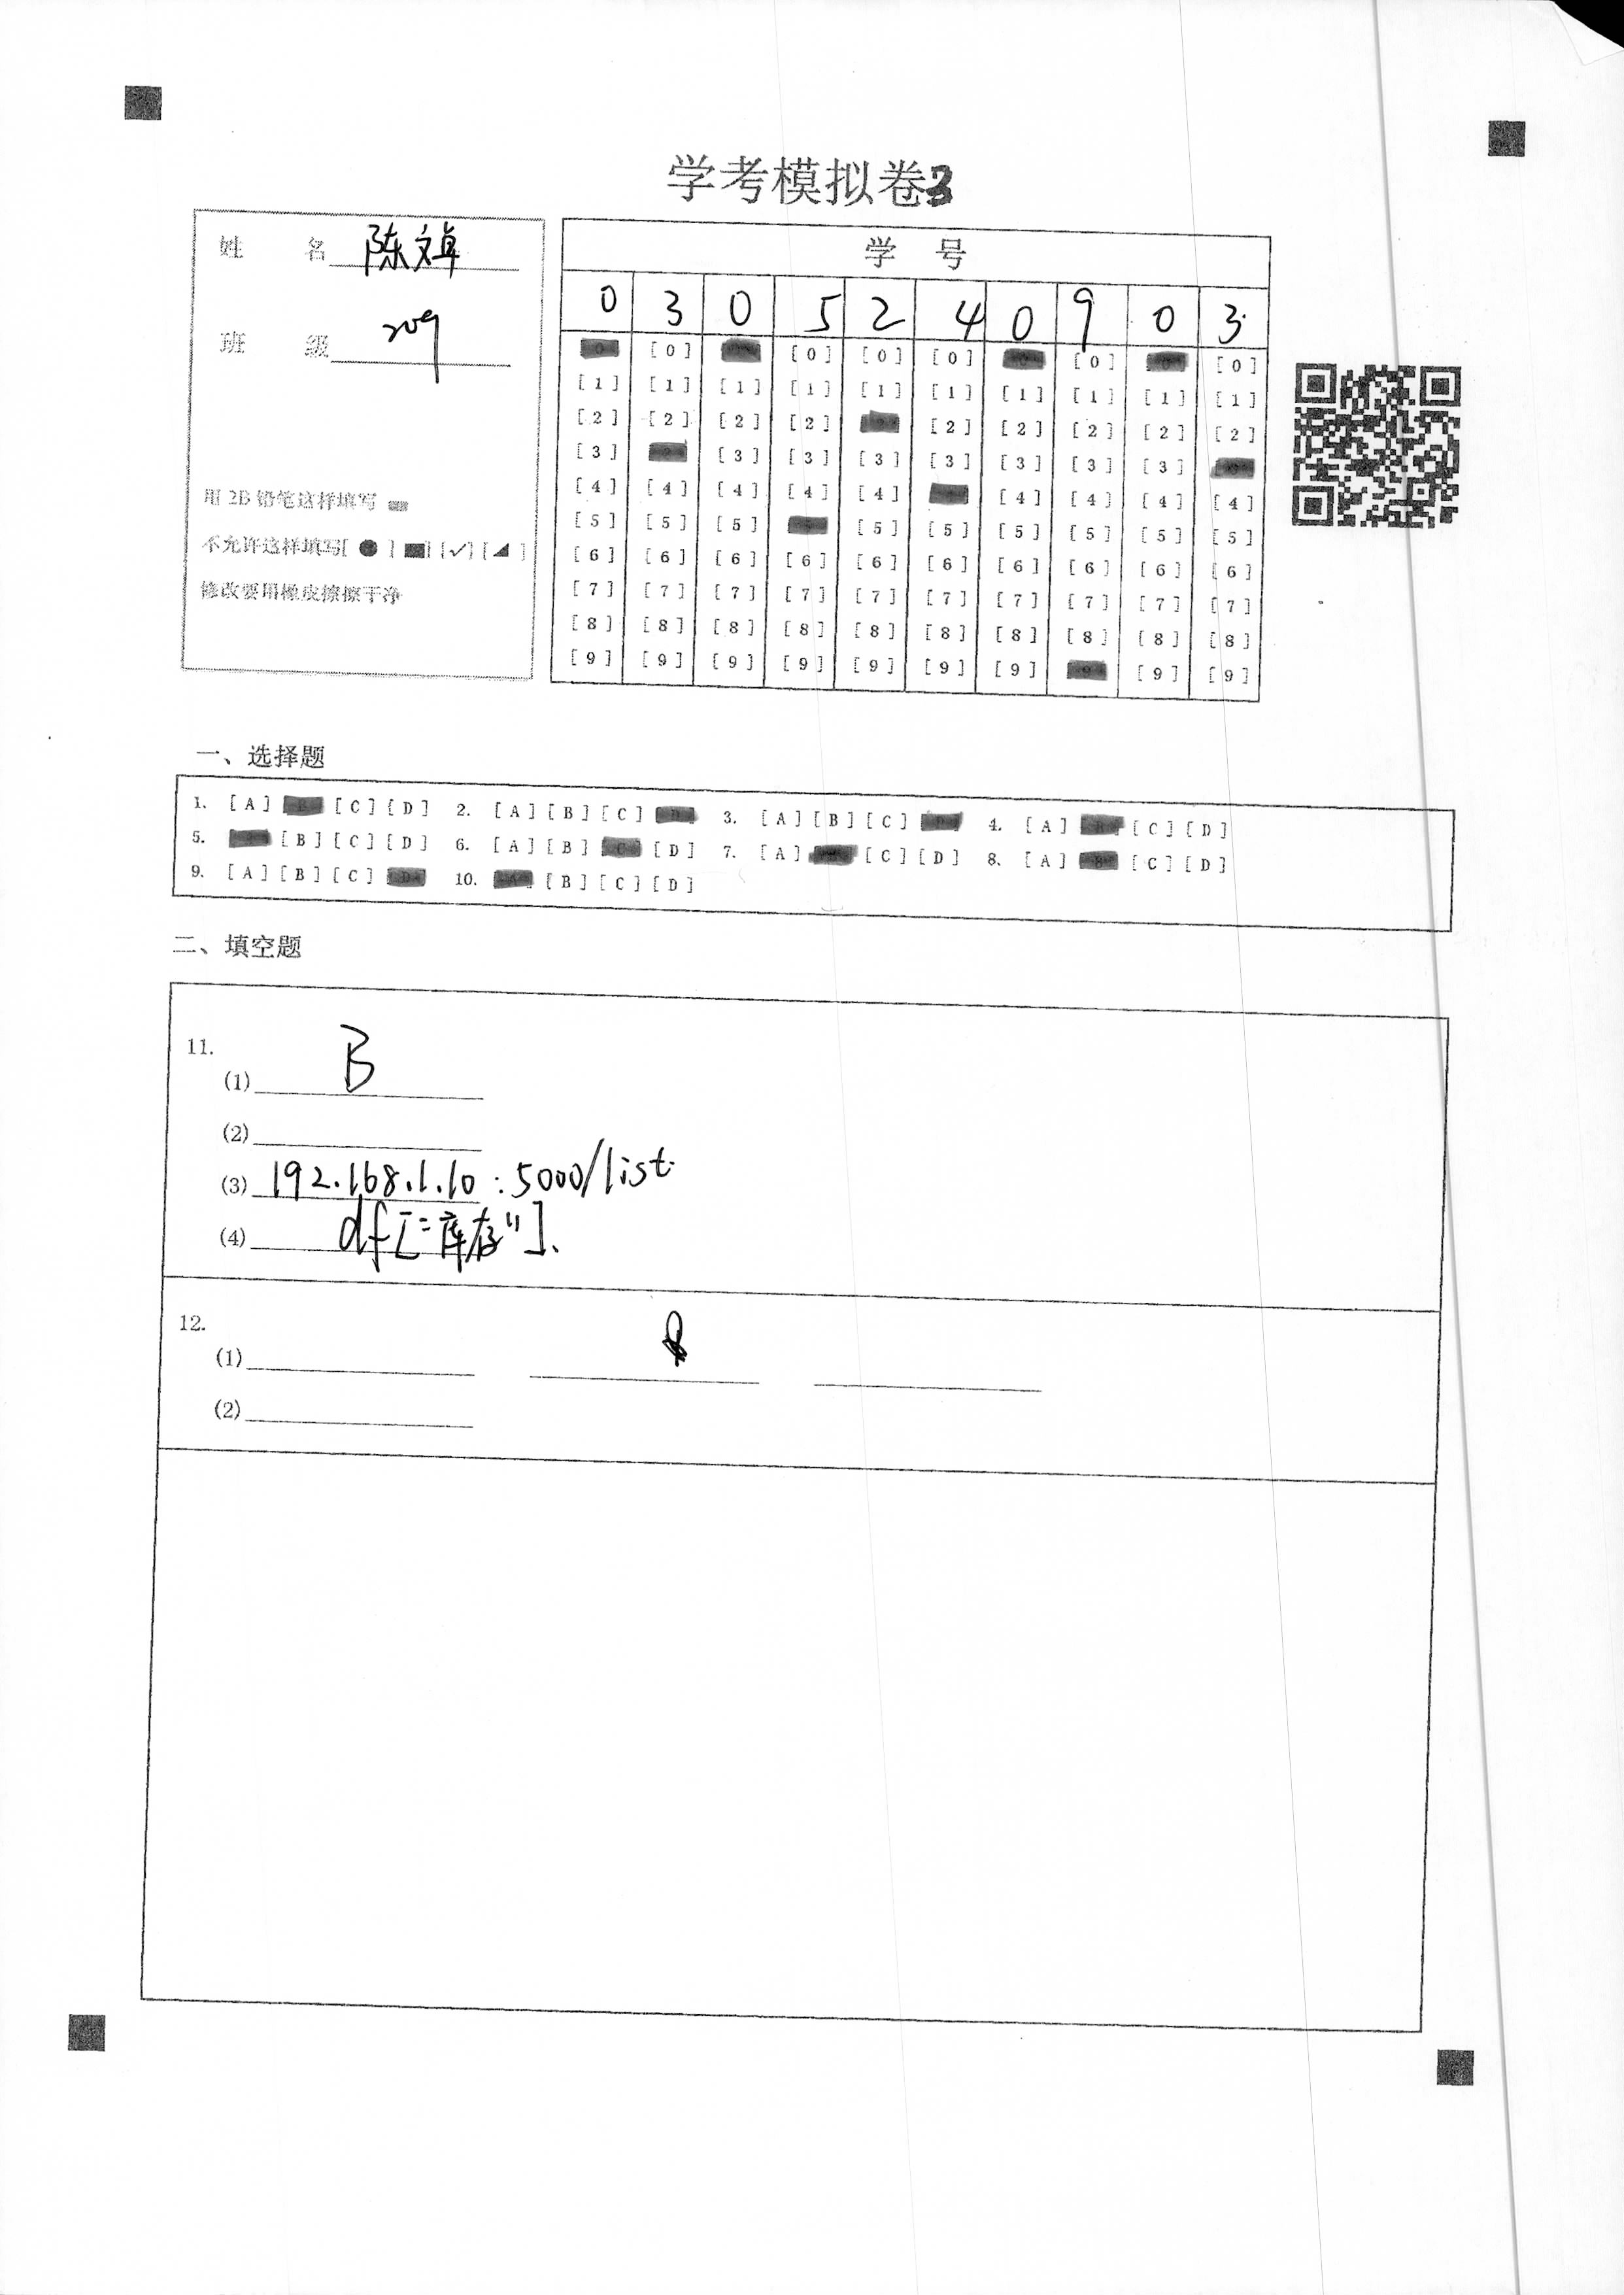 学考模拟卷3
姓 名 陈文卓
班 级 209
用 2B 铅笔这样填写
不允许这样填写[ ● ] [■] [✓] [◢ ]
修改要用橡皮擦擦干净
学 号
0 3 0 5 2 4 0 9 0 3
[0] [0] [0] [0] [0] [0]
[1] [1] [1] [1] [1] [1] [1] [1] [1] [1]
[2] [2] [2] [2] [2] [2] [2] [2] [2]
[3] [3] [3] [3] [3] [3] [3] [3]
[4] [4] [4] [4] [4] [4] [4] [4] [4]
[5] [5] [5] [5] [5] [5] [5] [5] [5]
[6] [6] [6] [6] [6] [6] [6] [6] [6] [6]
[7] [7] [7] [7] [7] [7] [7] [7] [7] [7]
[8] [8] [8] [8] [8] [8] [8] [8] [8] [8]
[9] [9] [9] [9] [9] [9] [9] [9] [9]
一、选择题
1. [A] [B] [C] [D] 2. [A] [B] [C] [D] 3. [A] [B] [C] [D] 4. [A] [B] [C] [D]
5. [B] [C] [D] 6. [A] [B] [C] [D] 7. [A] [C] [D] 8. [A] [B] [C] [D]
9. [A] [B] [C] [D] 10. [A] [B] [C] [D]
二、填空题
11.
(1) B
(2)
(3) 192.168.1.10:5000/list
(4) df["库存"]
12.
(1)
(2)